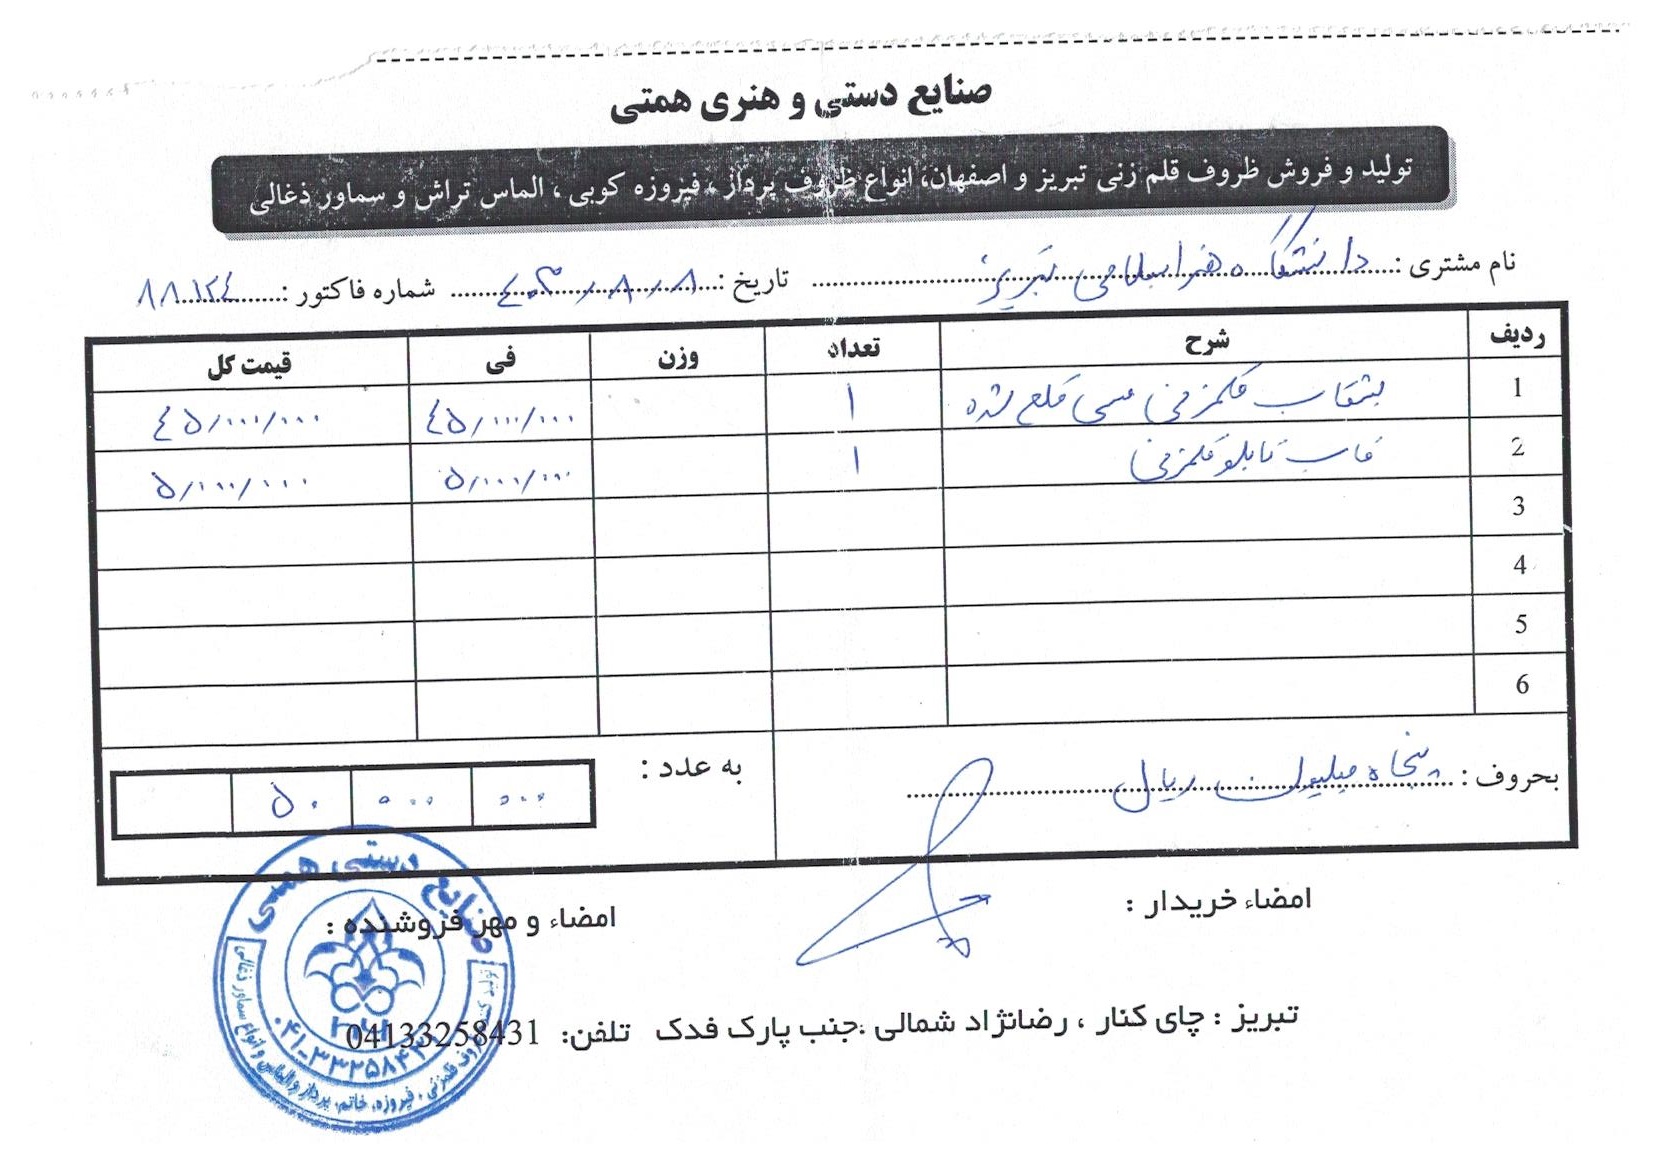 صنایع دستی و هنری همتی
تولید و فروش ظروف قلم زنی تبریز و اصفهان، انواع ظروف پرداز ، فیروزه کوبی ، الماس تراش و سماور ذغالی
نام مشتری : دانشگاه هنر اسلامی تبریز تاریخ : ۴۰۳/۸/۸ شماره فاکتور : ۸۸۱۲۴
ردیف شرح تعداد وزن فی قیمت کل
1 بشقاب قلمزنی مسی قلع شده ۱ ۴۵/۰۰۰/۰۰۰ ۴۵/۰۰۰/۰۰۰
2 قاب تابلو قلمزنی ۱ ۵/۰۰۰/۰۰۰ ۵/۰۰۰/۰۰۰
3
4
5
6
بحروف : پنجاه میلیون ریال به عدد : ۵۰ ۰۰۰ ۰۰۰
امضاء خریدار :
امضاء و مهر فروشنده :
صنایع دستی همتی
تبریز : چای کنار ، رضانژاد شمالی ،جنب پارک فدک تلفن: 04133258431